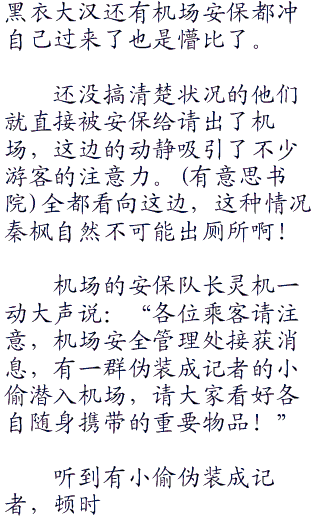 黑衣大汉还有机场安保都冲
自己过来了也是懵比了。
还没搞清楚状况的他们
就直接被安保给请出了机
场，这边的动静吸引了不少
游客的注意力。(有意思书
院)全都看向这边，这种情况
秦枫自然不可能出厕所啊！
机场的安保队长灵机一
动大声说：“各位乘客请注
意，机场安全管理处接获消
息，有一群伪装成记者的小
偷潜入机场，请大家看好各
自随身携带的重要物品！”
听到有小偷伪装成记
者，顿时